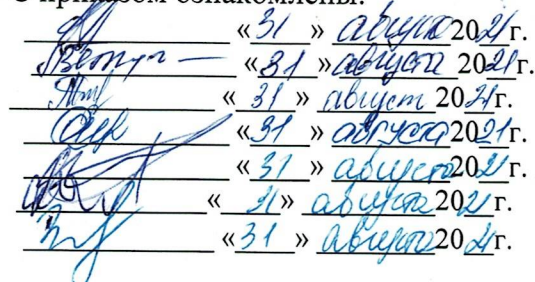 С приказом ознакомлены:
«31» август 2021г.
«31» августа 2021г.
«31» август 2021г.
«31» августа 2021г.
«31» августа 2021г.
«21» августа 2021г.
«31» августа 2021г.